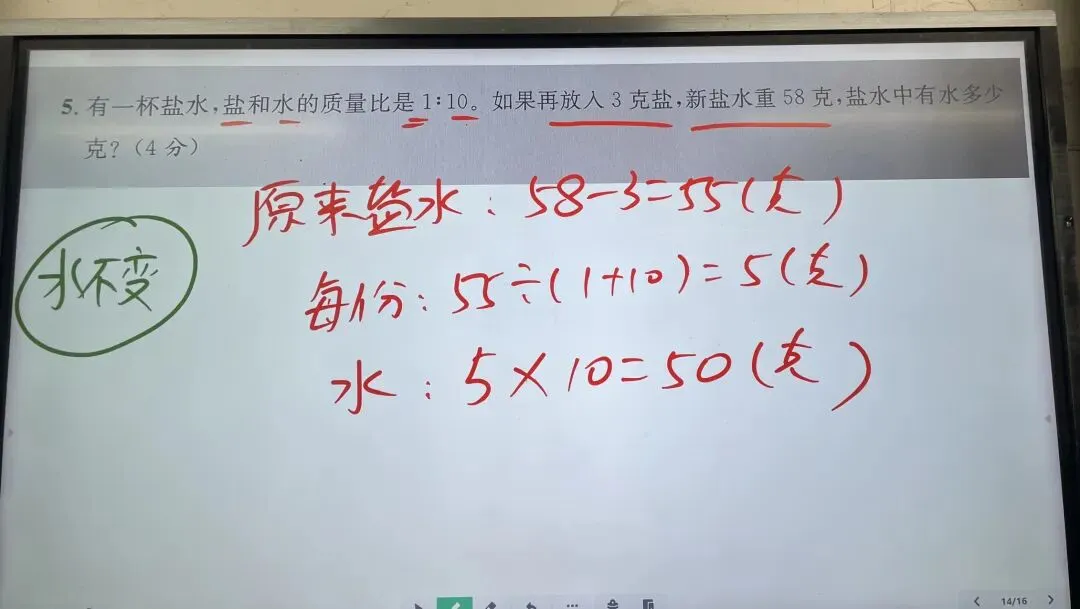 5. 有一杯盐水,盐和水的质量比是 1∶10。如果再放入 3 克盐,新盐水重 58 克,盐水中有水多少
克?(4 分)
原来盐水:58-3=55(克)
水不变
每份:55÷(1+10)=5(克)
水:5×10=50(克)
14/16